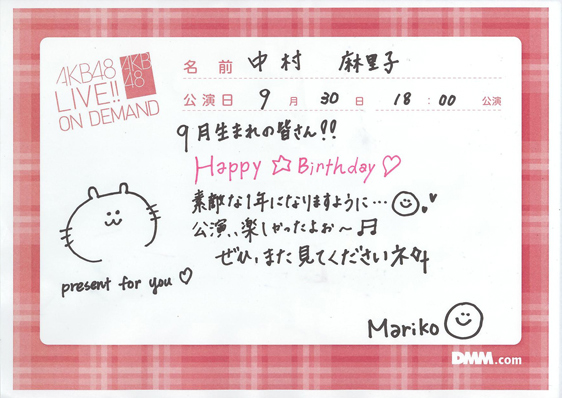 AKB48
LIVE!!
ON DEMAND
AKB
48
名前 中村 麻里子
公演日 9月30日 18:00公演
9月生まれの皆さん!!
Happy ☆ Birthday ♡
素敵な1年になりますように…
公演、楽しかったよぉ〜♬
ぜひ、また見てくださいネ
present for you ♡
Mariko
DMM.com